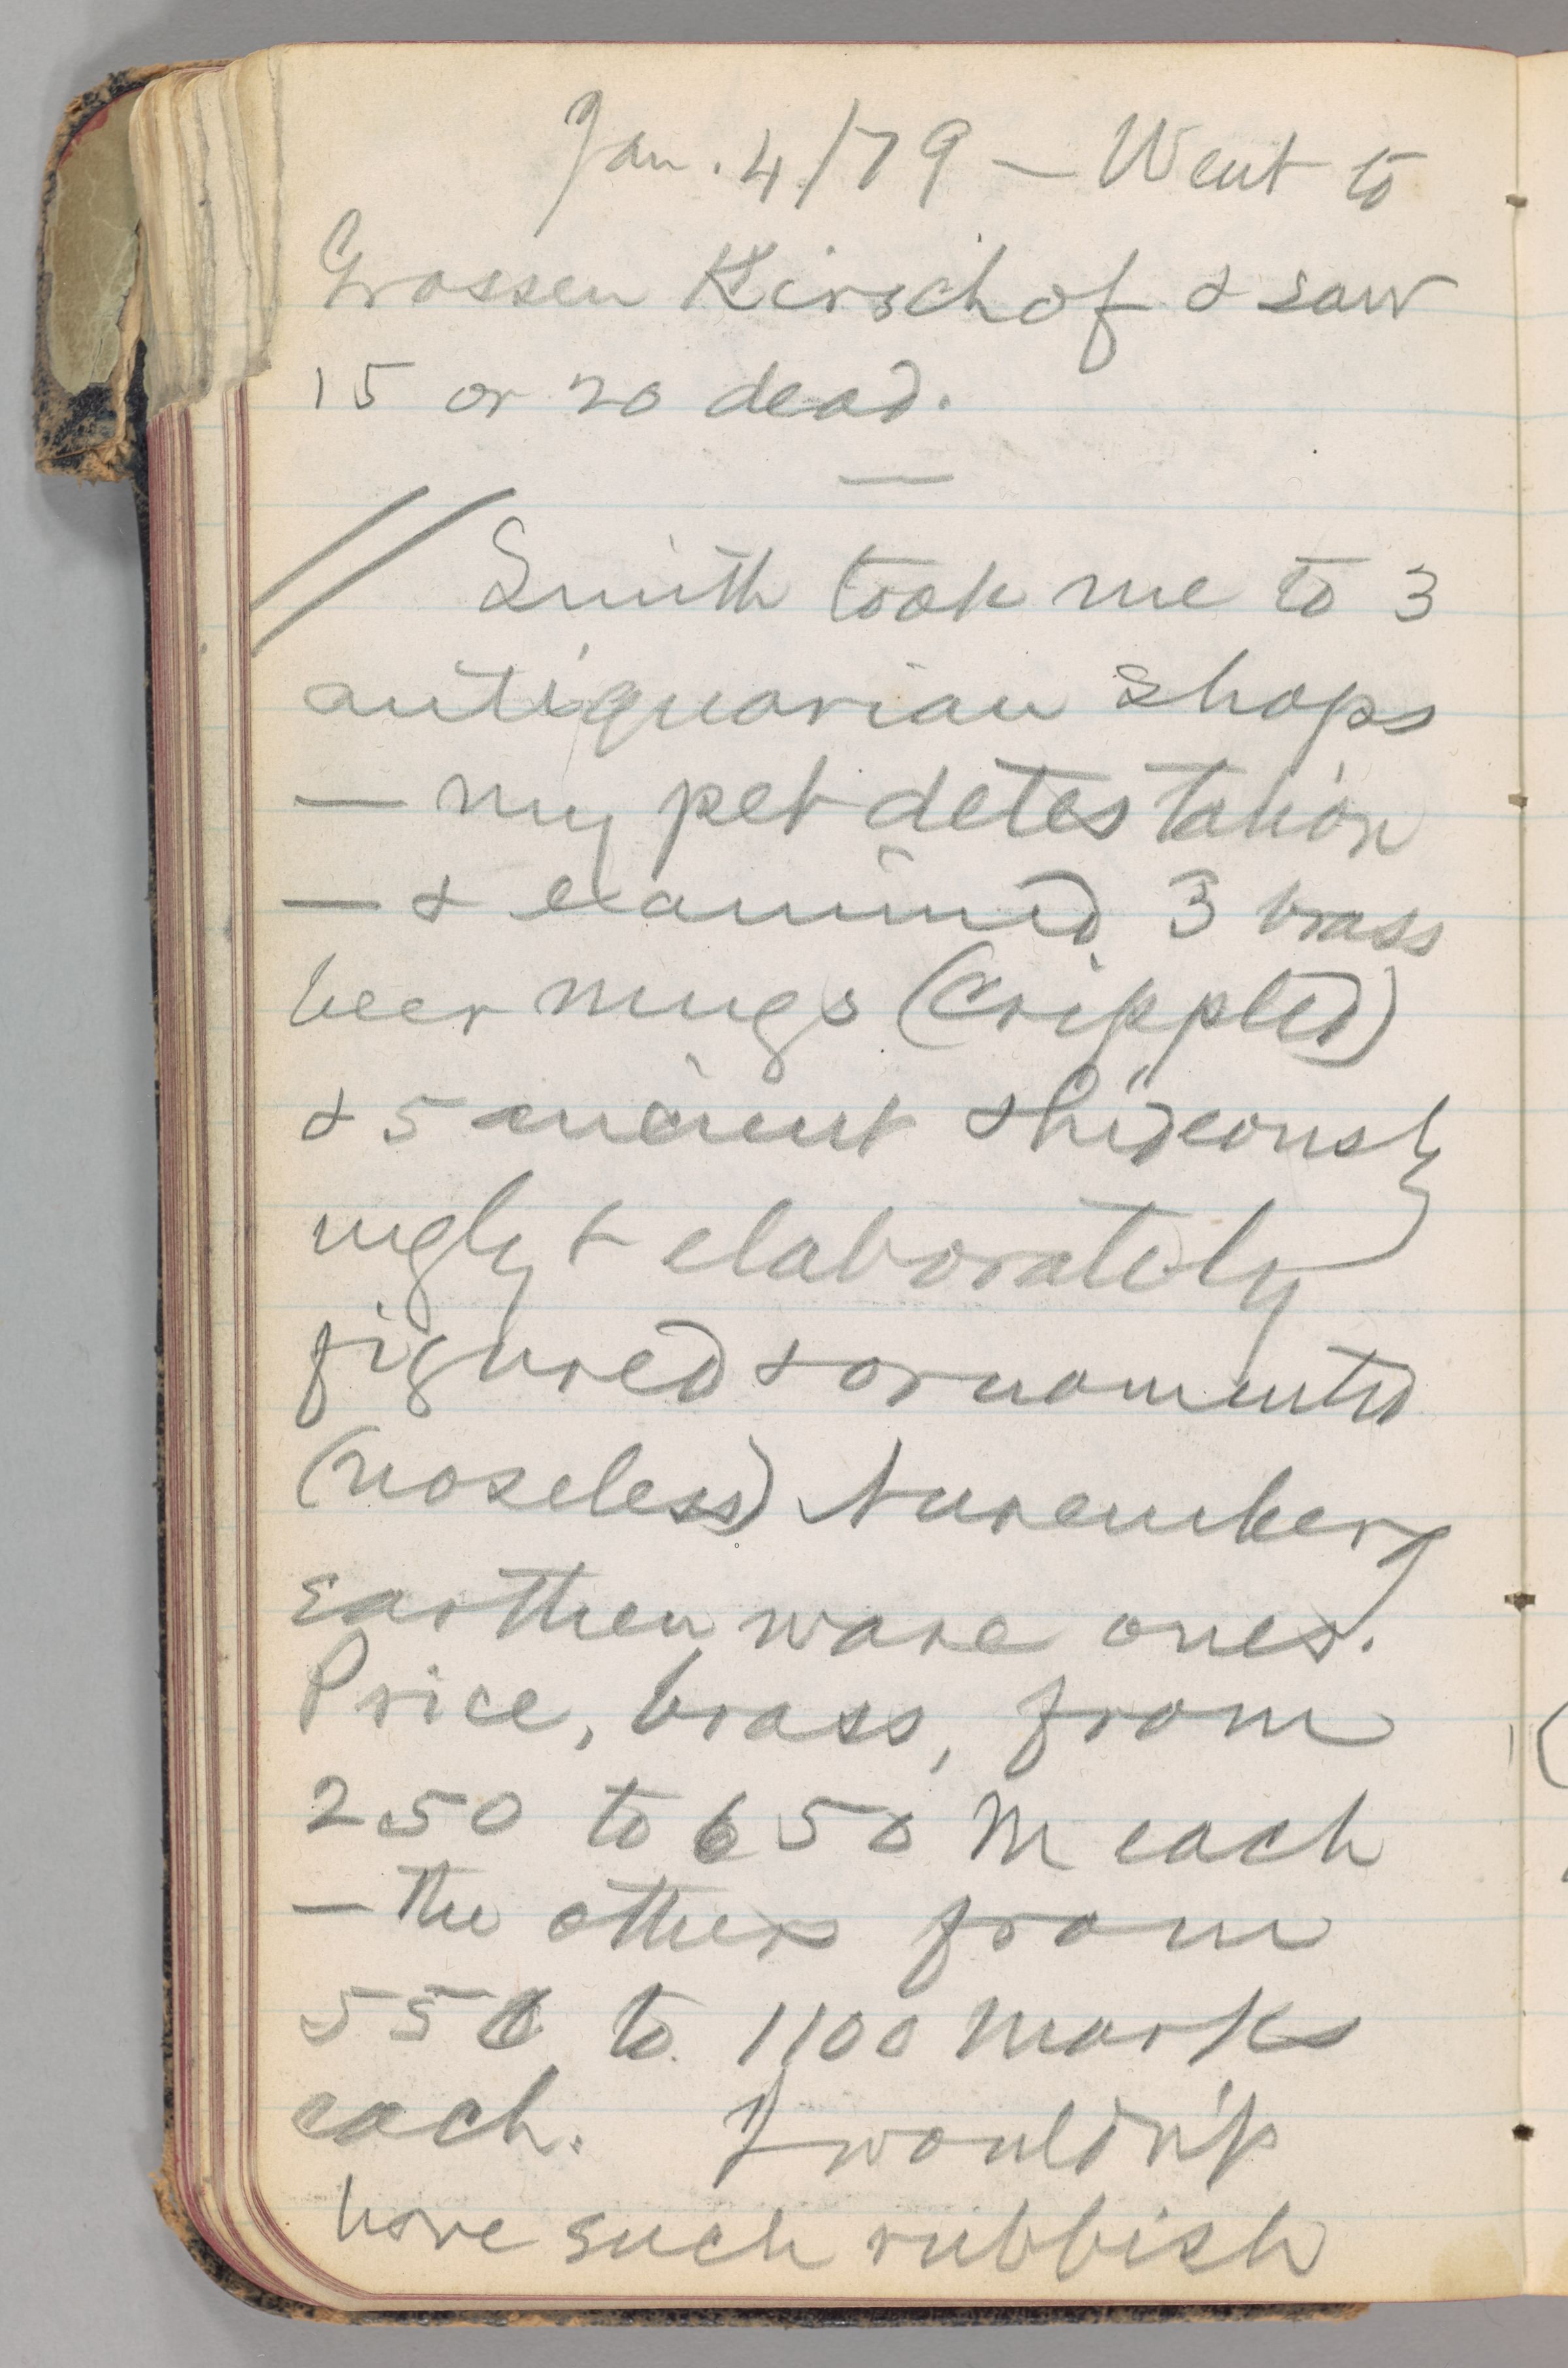 Jan. 4/79 — Went to
Grossen Kirschof & saw
15 or 20 dead.
—
// Smith took me to 3
antiquarian shops
— my pet detestation
— & examined 3 brass
beer mugs (crippled)
& 5 ancient & hideously
ugly & elaborately
figured & ornamented
(noseless) Nuremberg
earthen ware ones.
Price, brass, from
250 to 650 M each
— the others from
550 to 1100 marks
each. I wouldn't
have such rubbish